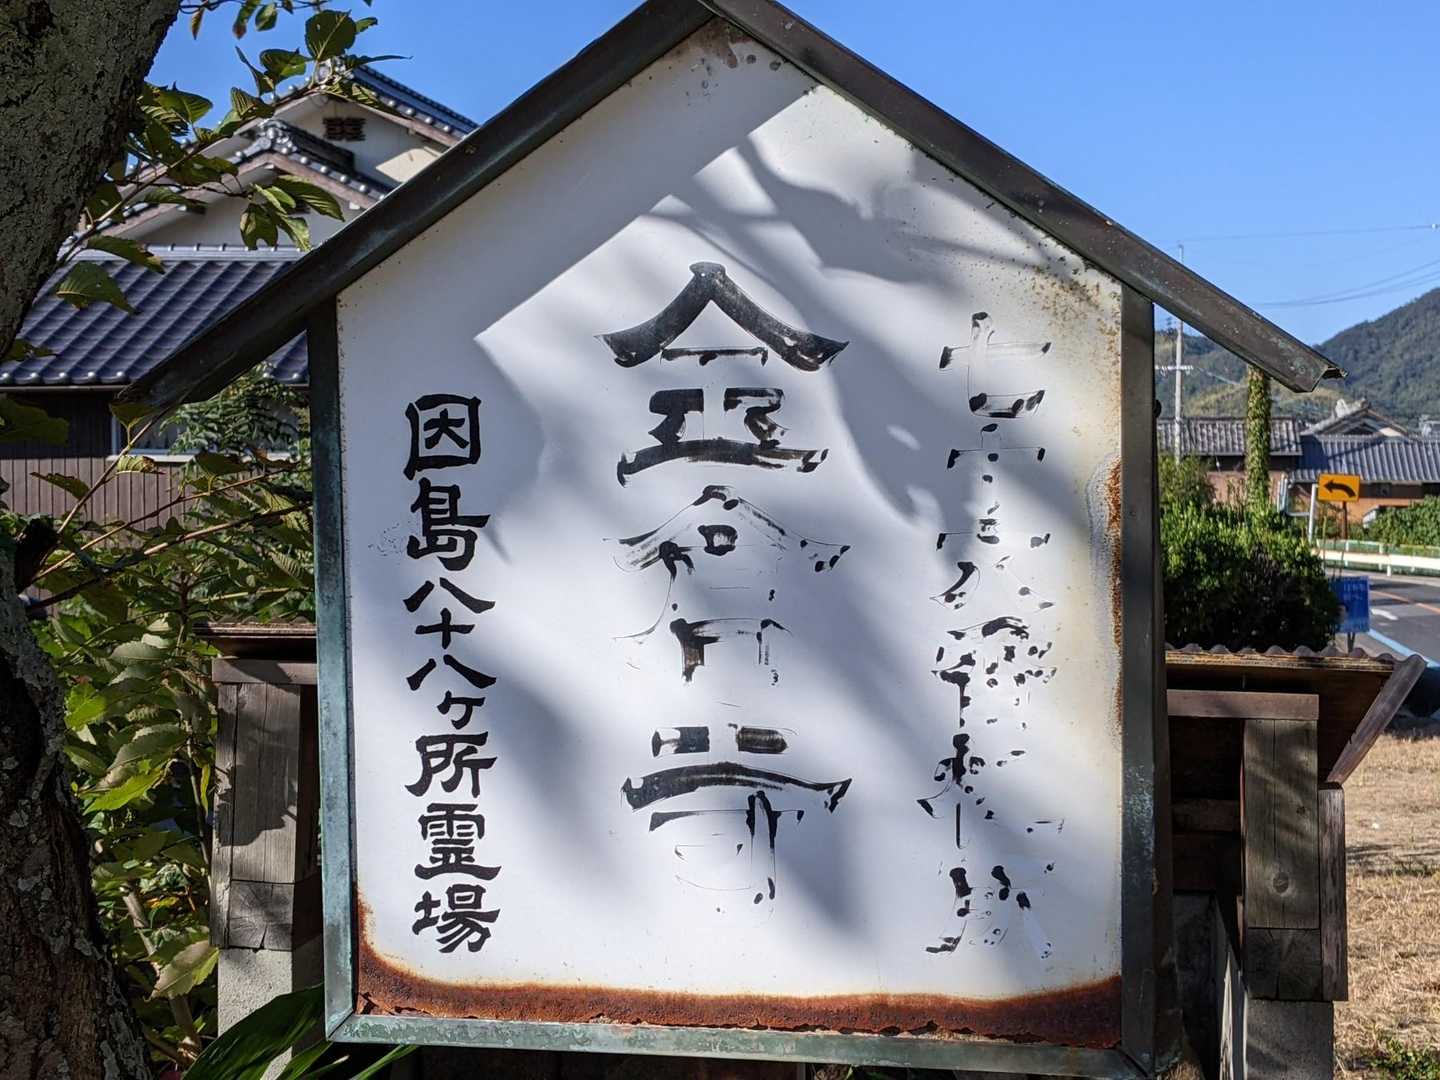 七十六番札所
金倉寺
因島八十八ヶ所霊場